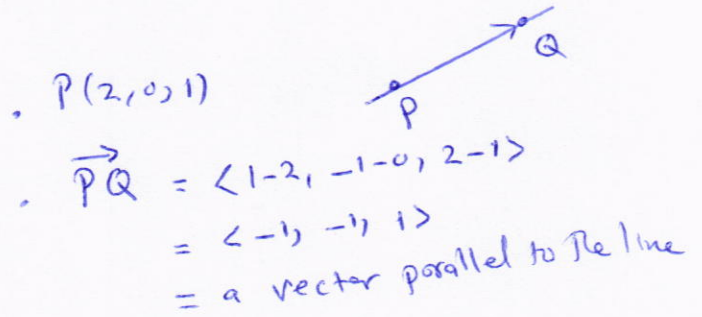 Q
. P(2,0,1)
P
. PQ = <1-2, -1-0, 2-1>
= <-1, -1, 1>
= a vector parallel to the line